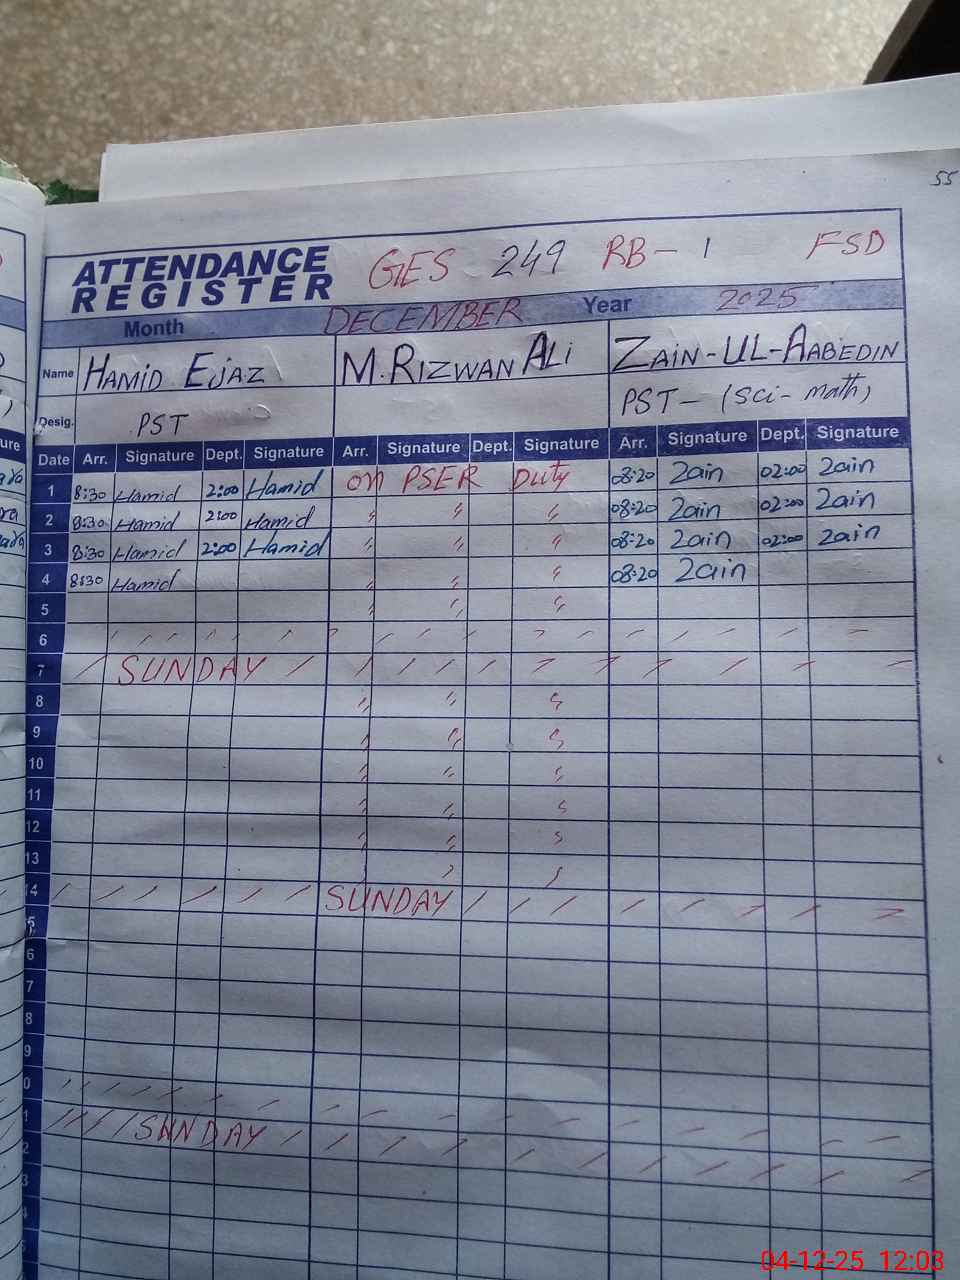 55
ATTENDANCE REGISTER GES 249 RB-1 FSD
Month DECEMBER Year 2025
Name HAMID EJAZ M. RIZWAN ALI ZAIN-UL-AABEDIN
Desig. PST PST-(Sci-math)
Date Arr. Signature Dept. Signature Arr. Signature Dept. Signature Arr. Signature Dept. Signature
1 8:30 Hamid 2:00 Hamid on PSER Duty 08:20 Zain 02:00 Zain
2 8:30 Hamid 2:00 Hamid " " " 08:20 Zain 02:00 Zain
3 8:30 Hamid 2:00 Hamid " " " 08:20 Zain 02:00 Zain
4 8:30 Hamid " " " 08:20 Zain
5 " " "
6
7 SUNDAY
8 " " "
9 " " "
10 " " "
11 " " "
12 " " "
13 " " "
4 SUNDAY
5
6
7
8
9
0
1 SUNDAY
2
3
04-12-25 12:03